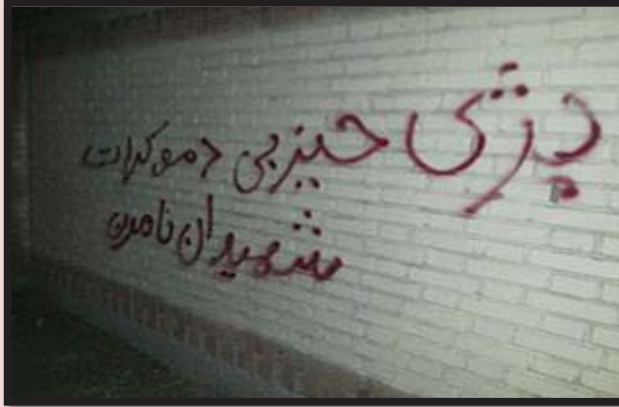 بژی حیزبی دموکرات
شهیدان نامرن